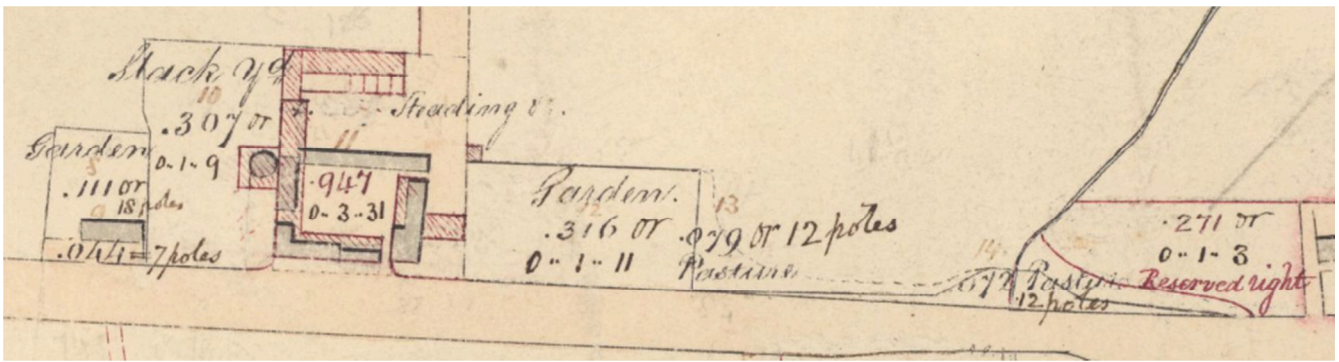 Stack Yd
10
.307 or
0-1-9
Garden
8
.111 or
18 poles
9
.044 = 7 poles
Steading &.
11
.947
0-3-31
Garden.
12
.316 or
0-1-11
13
.079 or 12 poles
Pasture
14
.072 Pasture
12 poles
.271 or
0-1-3
Reserved right